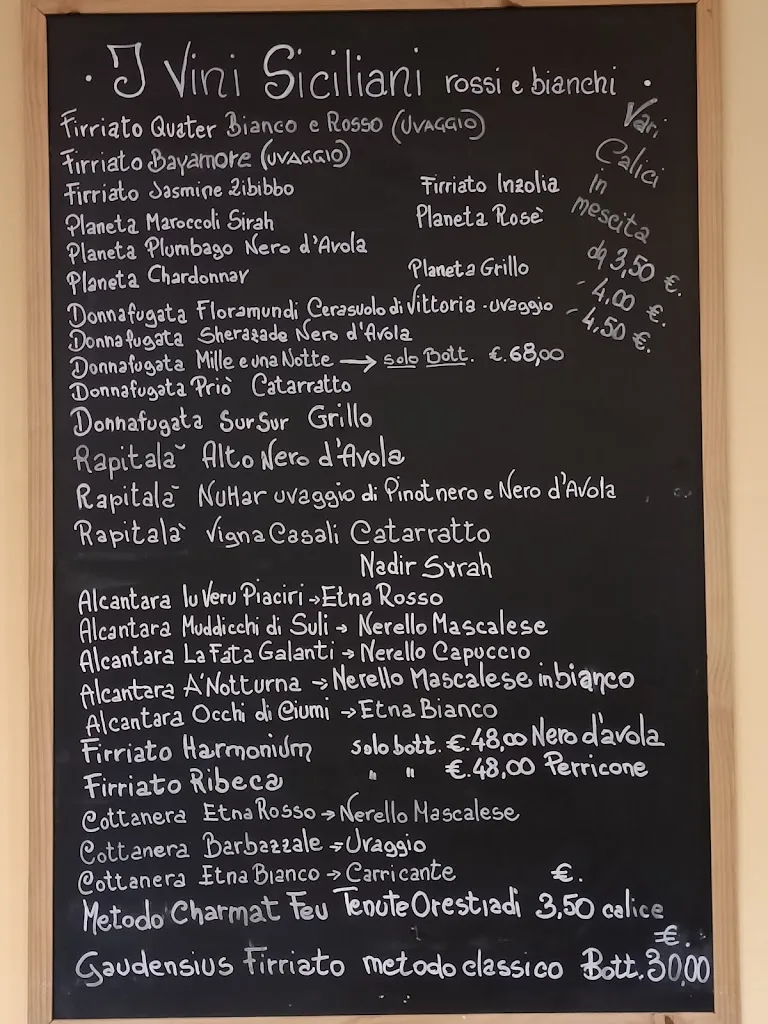 · I Vini Siciliani rossi e bianchi ·
Firriato Quater Bianco e Rosso (UVAGGIO)
Firriato Bayamore (UVAGGIO)
Firriato Jasmine Zibibbo
Firriato Inzolia
Planeta Maroccoli Sirah
Planeta Rosè
Planeta Plumbago Nero d'Avola
Planeta Chardonnay
Planeta Grillo
Donnafugata Floramundi Cerasuolo di Vittoria - uvaggio
Donnafugata Sherazade Nero d'Avola
Donnafugata Mille e una Notte → solo Bott. €.68,00
Donnafugata Priò Catarratto
Donnafugata SurSur Grillo
Rapitalà Alto Nero d'Avola
Rapitalà NuHar uvaggio di Pinot nero e Nero d'Avola
Rapitalà Vigna Casali Catarratto
Nadir Syrah
Alcantara Iu Veru Piaciri → Etna Rosso
Alcantara Muddicchi di Suli → Nerello Mascalese
Alcantara La Fata Galanti → Nerello Capuccio
Alcantara A'Notturna → Nerello Mascalese in bianco
Alcantara Occhi di Ciumi → Etna Bianco
Firriato Harmonium solo bott. €.48,00 Nero d'avola
Firriato Ribeca " " €.48,00 Perricone
Cottanera Etna Rosso → Nerello Mascalese
Cottanera Barbazzale → Uvaggio
Cottanera Etna Bianco → Carricante
Metodo Charmat Feu Tenute Orestiadi €. 3,50 calice
Gaudensius Firriato metodo classico Bott. €. 30,00
Vari
Calici
in
mescita
da 3,50 €.
- 4,00 €.
- 4,50 €.